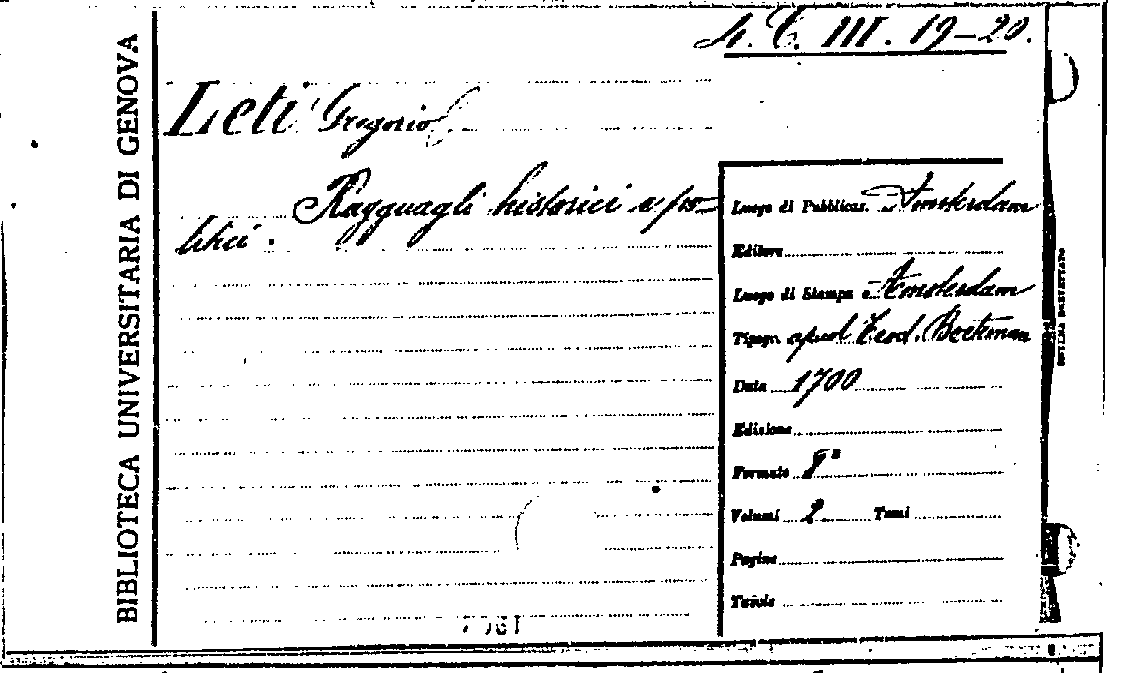 4. C. III. 19-20.
BIBLIOTECA UNIVERSITARIA DI GENOVA
Leti Gregorio
Ragguagli historici e po=
litici.
Luogo di Pubblicaz. Amsterdam
Editore
Luogo di Stampa Amsterdam
Tipogr. apud Teod. Boetman
Data 1700
Edizione
Formato 8°
Volumi 2 Tomi
Pagine
Tavole